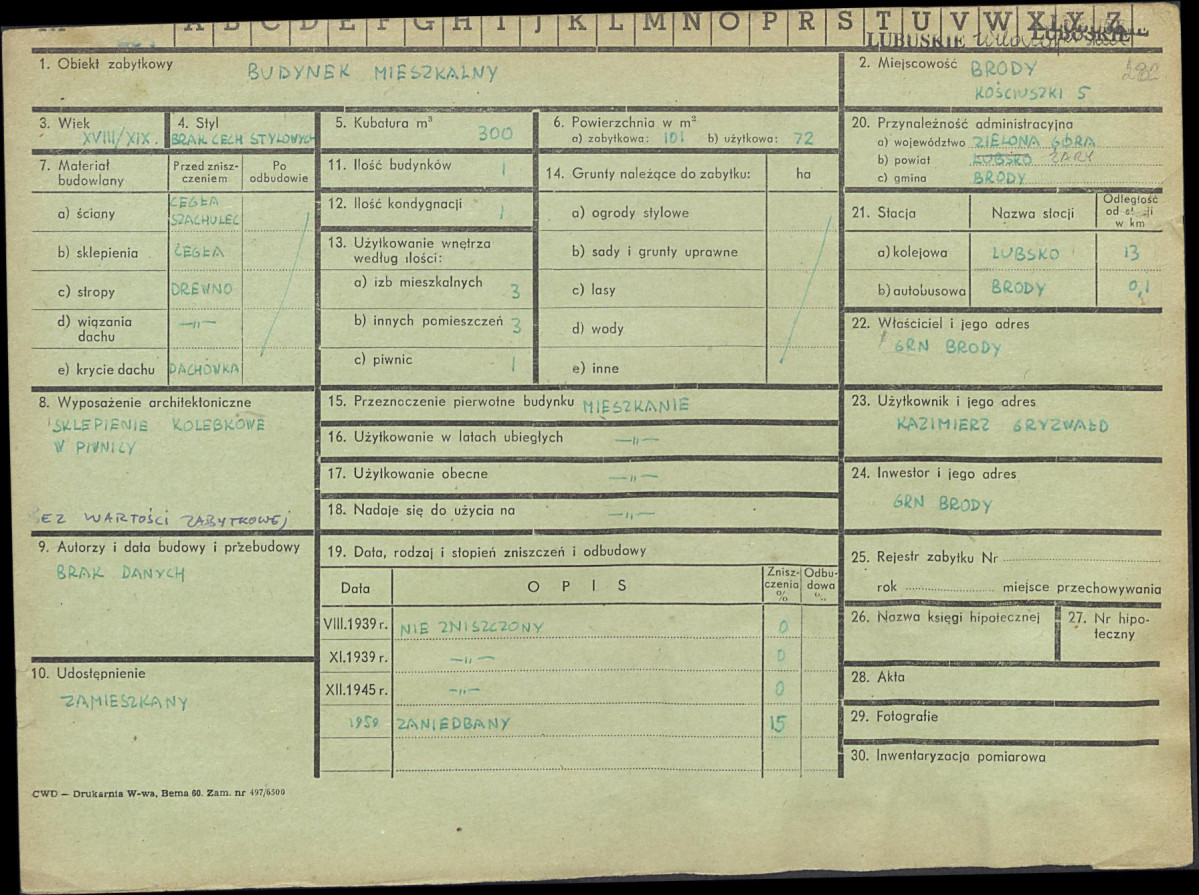 A B C D E F G H I J K L M N O P R S T U V W X Y Z
LUBUSKIE LUBUSKIE
1. Obiekt zabytkowy
BUDYNEK MIESZKALNY
2. Miejscowość BRODY
KOŚCIUSZKI 5
3. Wiek
XVIII/XIX.
4. Styl
BRAK CECH STYLOWYCH
5. Kubatura m³
300
6. Powierzchnia w m²
a) zabytkowa: 101 b) użytkowa: 72
20. Przynależność administracyjna
a) województwo ZIELONA GÓRA
b) powiat LUBSKO ŻARY
c) gmina BRODY
7. Materiał budowlany
Przed znisz-
czeniem
Po
odbudowie
a) ściany CEGŁA
SZACHULEC
b) sklepienia CEGŁA
c) stropy DREWNO
d) wiązania dachu —„—
e) krycie dachu DACHÓWKA
11. Ilość budynków 1
12. Ilość kondygnacji 1
13. Użytkowanie wnętrza
według ilości:
a) izb mieszkalnych 3
b) innych pomieszczeń 3
c) piwnic 1
14. Grunty należące do zabytku: ha
a) ogrody stylowe
b) sady i grunty uprawne
c) lasy
d) wody
e) inne
21. Stacja Nazwa stacji Odległość
od stacji
w km
a) kolejowa LUBSKO 13
b) autobusowa BRODY 0,1
22. Właściciel i jego adres
GRN BRODY
8. Wyposażenie architektoniczne
SKLEPIENIE KOLEBKOWE
W PIWNICY
BEZ WARTOŚCI ZABYTKOWEJ
15. Przeznaczenie pierwotne budynku MIESZKANIE
16. Użytkowanie w latach ubiegłych —„—
17. Użytkowanie obecne —„—
18. Nadaje się do użycia na —„—
23. Użytkownik i jego adres
KAZIMIERZ GRYZWAŁD
24. Inwestor i jego adres
GRN BRODY
9. Autorzy i data budowy i przebudowy
BRAK DANYCH
10. Udostępnienie
ZAMIESZKANY
19. Data, rodzaj i stopień zniszczeń i odbudowy
Data OPIS Znisz-
czenia
%
Odbu-
dowa
%
VIII.1939 r. NIE ZNISZCZONY 0
XI.1939 r. —„— 0
XII.1945 r. —„— 0
1959 ZANIEDBANY 15
25. Rejestr zabytku Nr
rok miejsce przechowywania
26. Nazwa księgi hipotecznej
27. Nr hipo-
teczny
28. Akta
29. Fotografie
30. Inwentaryzacja pomiarowa
CWD — Drukarnia W-wa, Bema 60. Zam. nr 497/6500